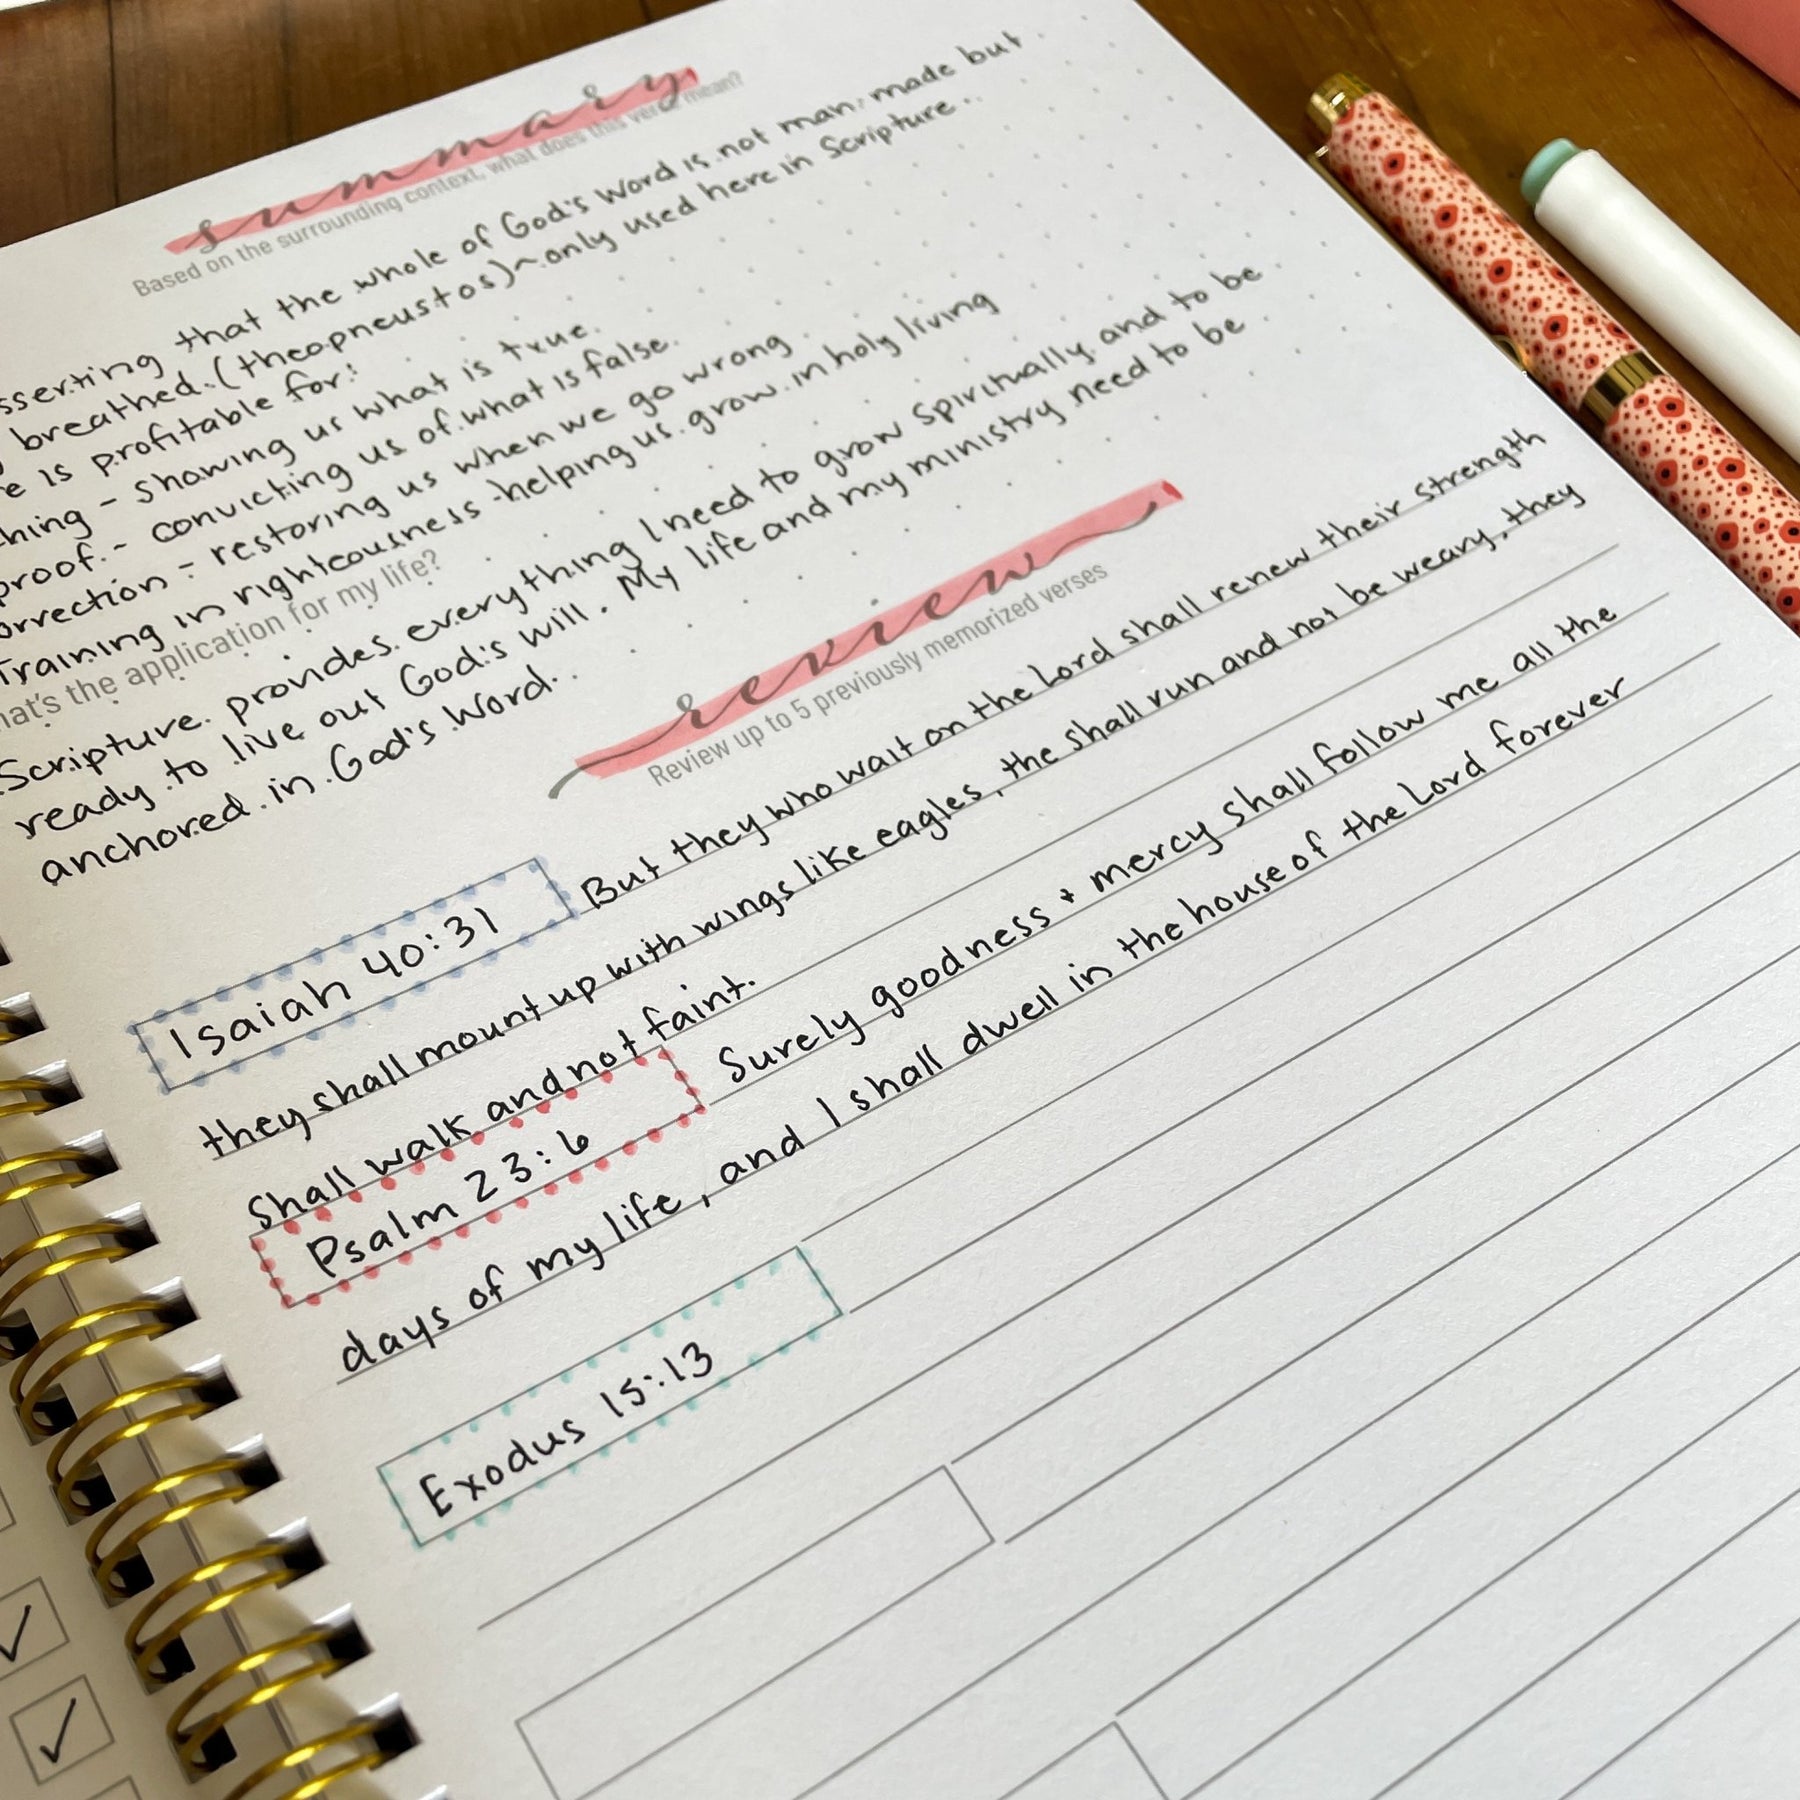 summary
Based on the surrounding context, what does this verse mean?
sserting that the whole of God's Word is not man-made but
breathed (theopneustos) ~ only used here in Scripture.
e is profitable for:
ching - showing us what is true.
proof - convicting us of what is false.
orrection - restoring us when we go wrong
Training in righteousness - helping us grow in holy living
hat's the application for my life?
Scripture provides everything I need to grow spiritually and to be
ready to live out God's will. My life and my ministry need to be
anchored in God's Word.
review
Review up to 5 previously memorized verses
Isaiah 40:31 But they who wait on the Lord shall renew their strength
they shall mount up with wings like eagles, the shall run and not be weary, they
shall walk and not faint.
Psalm 23:6 Surely goodness + mercy shall follow me all the
days of my life, and I shall dwell in the house of the Lord forever
Exodus 15:13